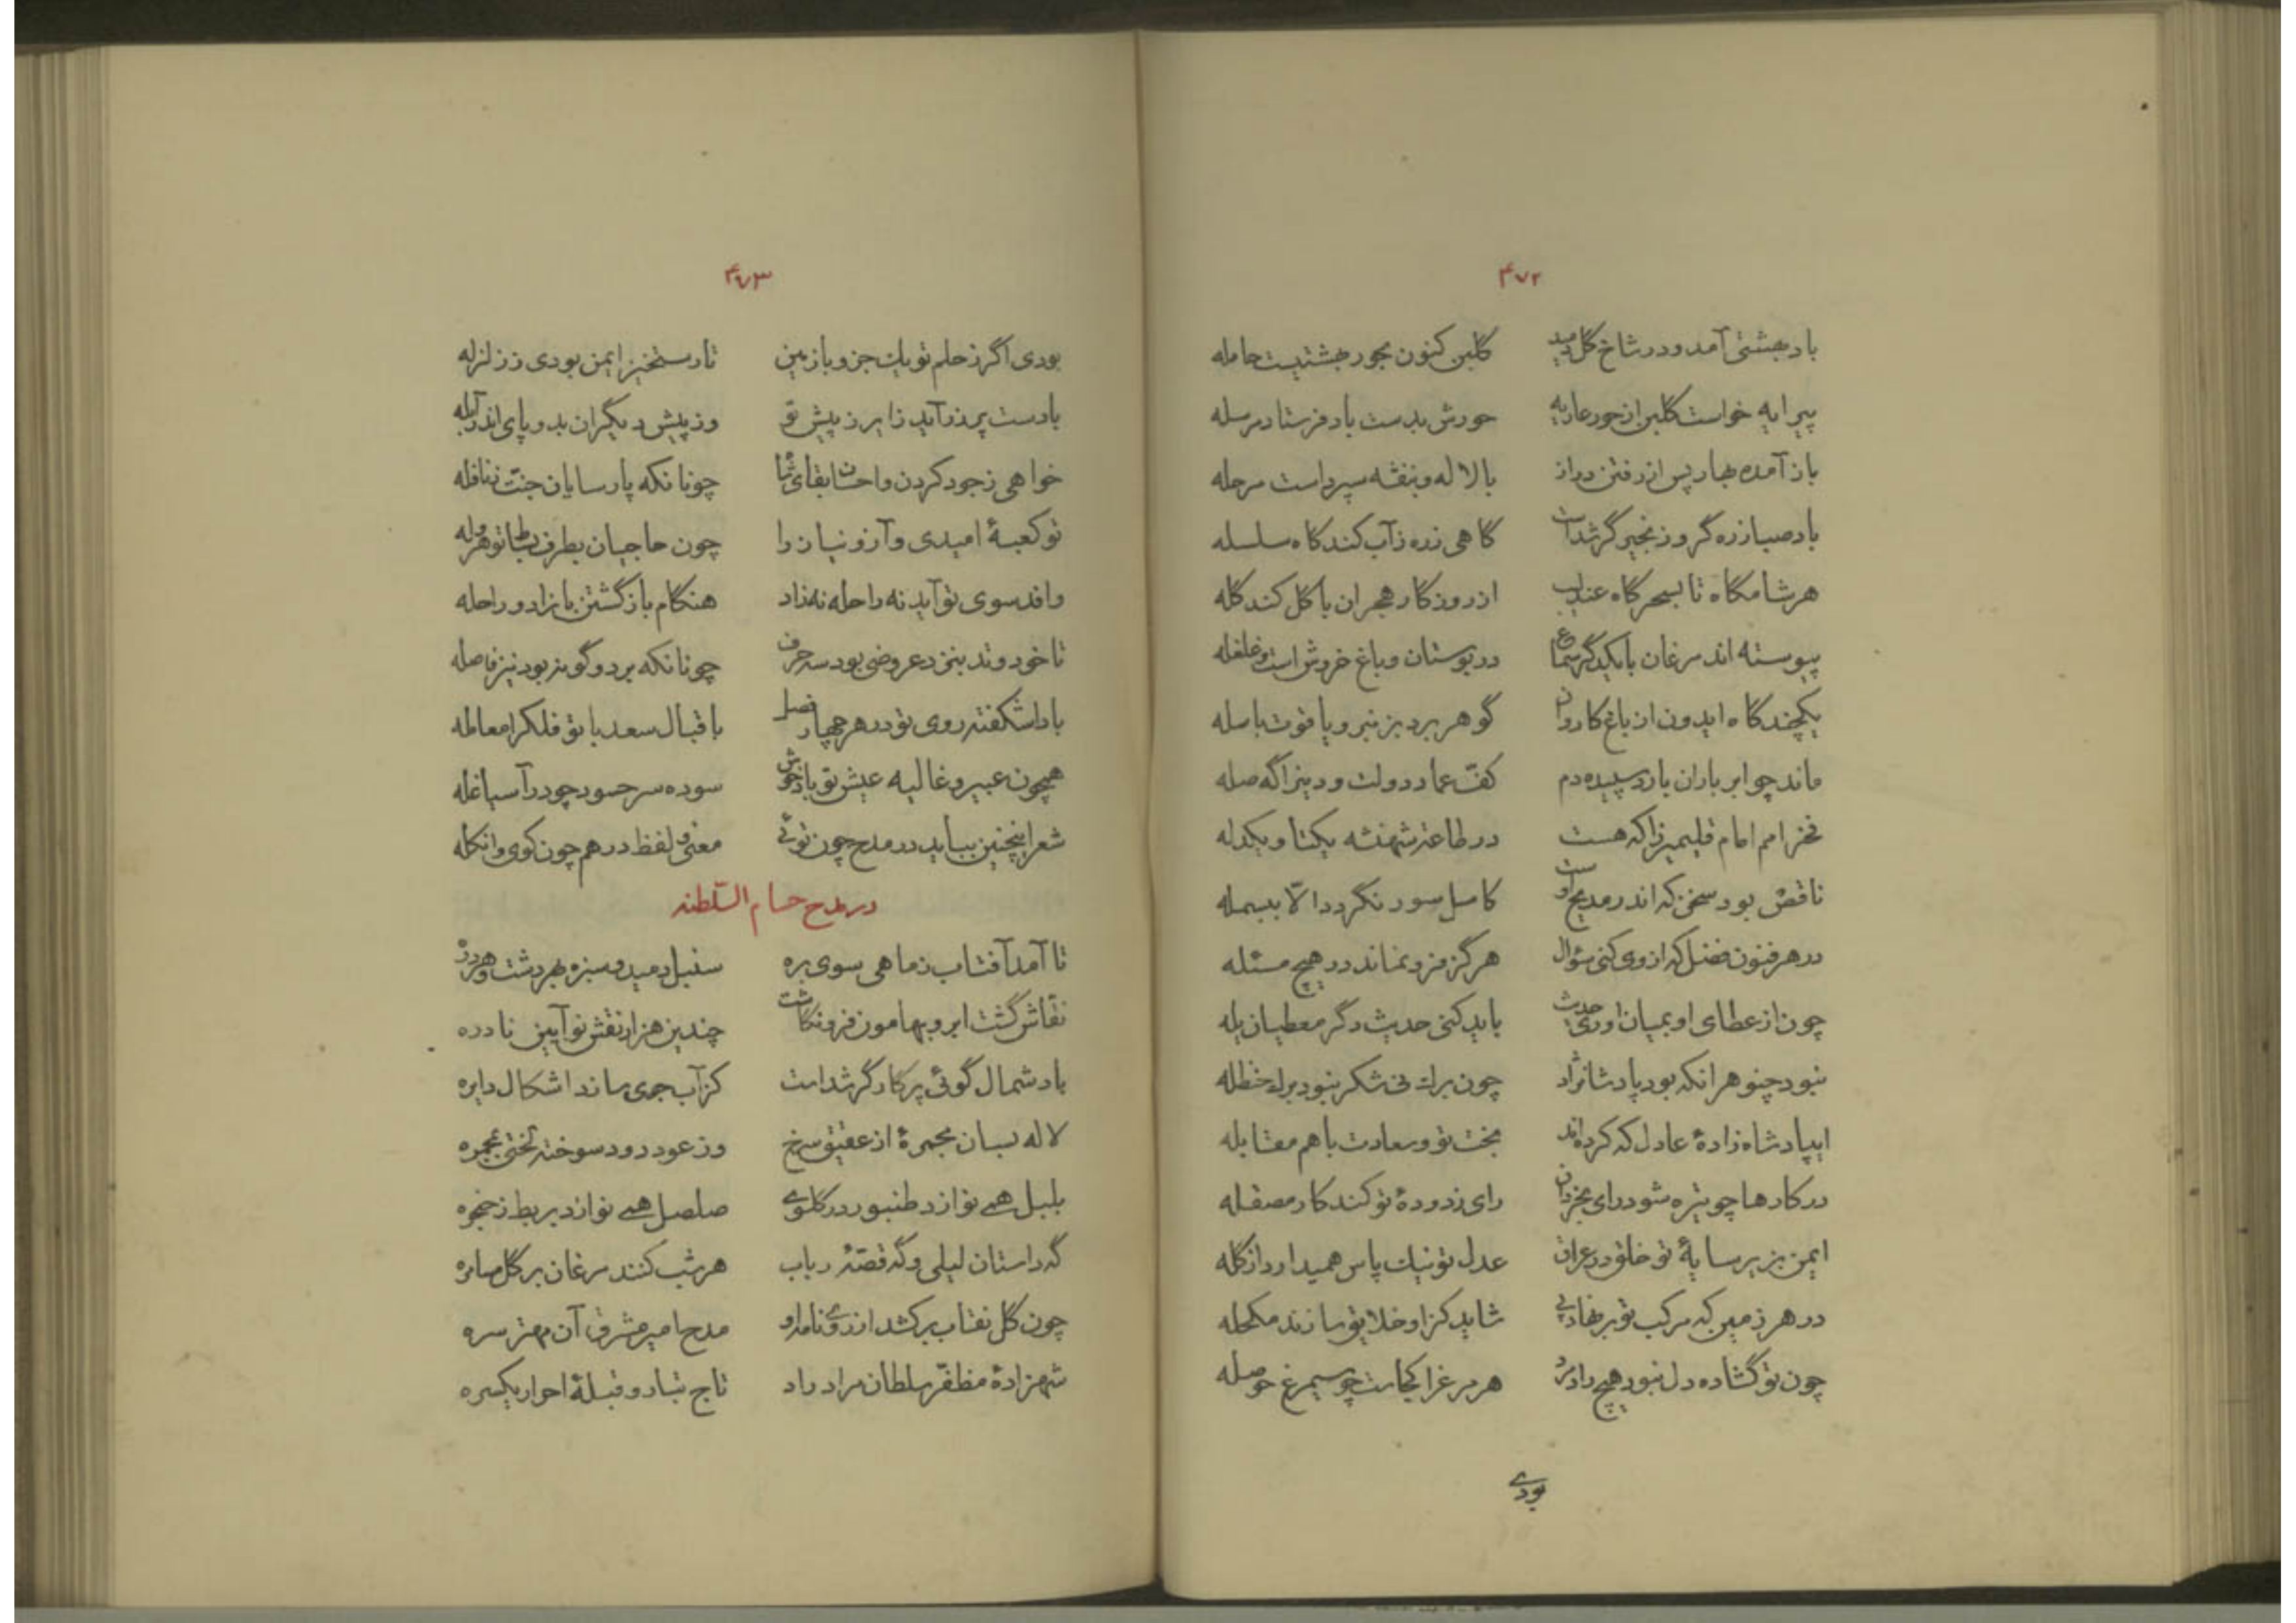 ۴۷۲
باد بهشتی آمد و در شاخ گل دمید گلبن کنون بحور بهشتیست حامله
پیرایه خواست گلبن از حور عاریه حورش بدست باد فرستاد مرسله
باز آمده بهار پس از رفتن دراز با لاله و بنفشه سپرداست مرحله
باد صبا زره گر و زنجیر گر شداست گاهی زره ز آب کند گاه سلسله
هر شامگاه تا بسحرگاه عندلیب از روزگار هجران با گل کند گله
پیوسته اند مرغان با یکدگر سماع در بوستان و باغ خروش است و غلغله
یکچندگاه ایدون از باغ کاروان گوهر برد بزنبر و یاقوت با سله
ماند چو ابر باران بارد سپیده دم کفّ عماد دولت و دین را گه صله
فخر امم امام قلیمیرزا که هست در طاعت شهنشه یکتا و یکدله
ناقص بود سخن که اندر مدیح اوست کامل سور نگردد الّا ببسمله
در هر فنون فضل که از وی کنی سؤال هرگز فرو نماند در هیچ مسئله
چون از عطای او بمیان آوری حدیث باید کنی حدیث دگر معطیان یله
نبود چنو هر آنکه بود پادشانژاد چون برك نی شکر نبود برك حنظله
ای پادشاه زادهٔ عادل که کرده‌اند بخت تو و سعادت با هم مقابله
در کارها چو تیره شود رای بخردان رای زدودهٔ تو کند کار مصقله
ایمن بزیر سایهٔ تو خلق در عراق عدل تو نیك پاس همیدارد از گله
در هر زمین که مرکب تو برنهاد پی شاید کز او خلایق سازند مکحله
چون تو گشاده دل نبود هیچ رادمرد هر مرغ را کجاست چو سیمرغ حوصله
بودی
۴۷۳
بودی اگر ز حلم تو یك جزو با زمین تا رستخیز ایمن بودی ز زلزله
با دست پر زر آید زایر ز پیش تو وز پیش دیگران بد و پای اندر آبله
خواهی ز جود کردن و احسان بقای نما چونانکه پارسایان جنّت ز نافله
تو کعبهٔ امیدی و آز و نیاز را چون حاجیان بطرف بساط تو هروله
وافد سوی تو آید نه راحله نه زاد هنگام بازگشتن با زاد و راحله
تا خود وتد بنزد عروضی بود سه حرف چونانکه بر دو گونه بود نیز فاصله
بادا شکفته روی تو در هر چهار فصل باقبال سعد با تو فلک را معامله
همچون عبیر و غالیه عیش تو باد خوش سوده سر حسود چو در آسیا غله
شعر اینچنین بباید در مدح چون توئی معنی و لفظ در هم چون گوی و انگله
در مدح حسام السّلطنه
تا آمد آفتاب ز ماهی سوی بره سنبل دمید و سبزه بهر دشت و هر دره
نقّاش گشت ابر و بهامون فرو نگاشت چندین هزار نقش نو آیین نادره
باد شمال گوئی پرکارگر شداست کز آب جوی سازد اشکال دایره
لاله بسان مجمرهٔ از عقیق سرخ وز عود دود سوخته لختی بمجمره
بلبل همے نوازد طنبور در گلوے صلصل همے نوازد بربط ز حنجره
گه داستان لیلی و گه قصّهٔ رباب هر شب کنند مرغان بر گل مسامره
چون گل نقاب برکشد از روے نامداو مدح امیر مشرق آن مهتر سره
شهزادهٔ مظفّر سلطان مراد راد تاج تبار و قبلهٔ احرار یکسره